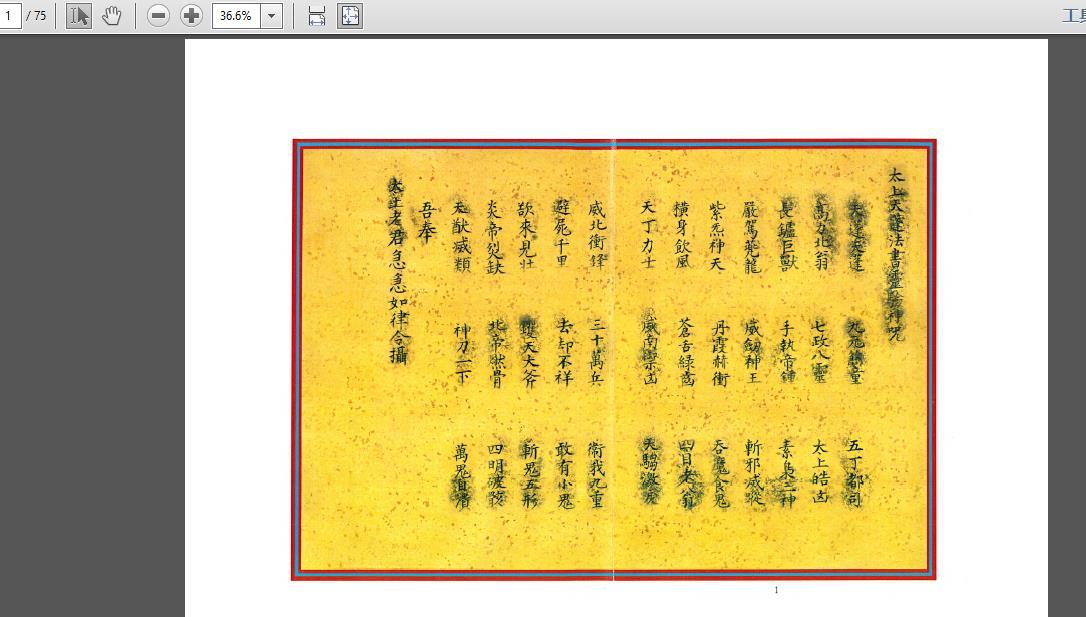 1 / 75
36.6%
太上天蓬法書靈驗神咒
天蓬天蓬 九元煞童 五丁都司
高刀北翁 七政八靈 太上皓凶
長鑪巨獸 手執帝鍾 素梟三神
嚴駕夔龍 威劍神王 斬邪滅蹤
紫炁神天 丹霞赫衝 吞魔食鬼
橫身飲風 蒼舌綠齒 四目老翁
天丁力士 威南禦凶 天騶激戾
威北衝鋒 三十萬兵 衛我九重
辟屍千里 去却不祥 敢有小鬼
欲來見壯 钁天大斧 斬鬼五形
炎帝烈 北帝燃骨 四明破骸
天猷滅類 神刀一下 萬鬼自潰
吾奉
太上老君急急如律令攝
1